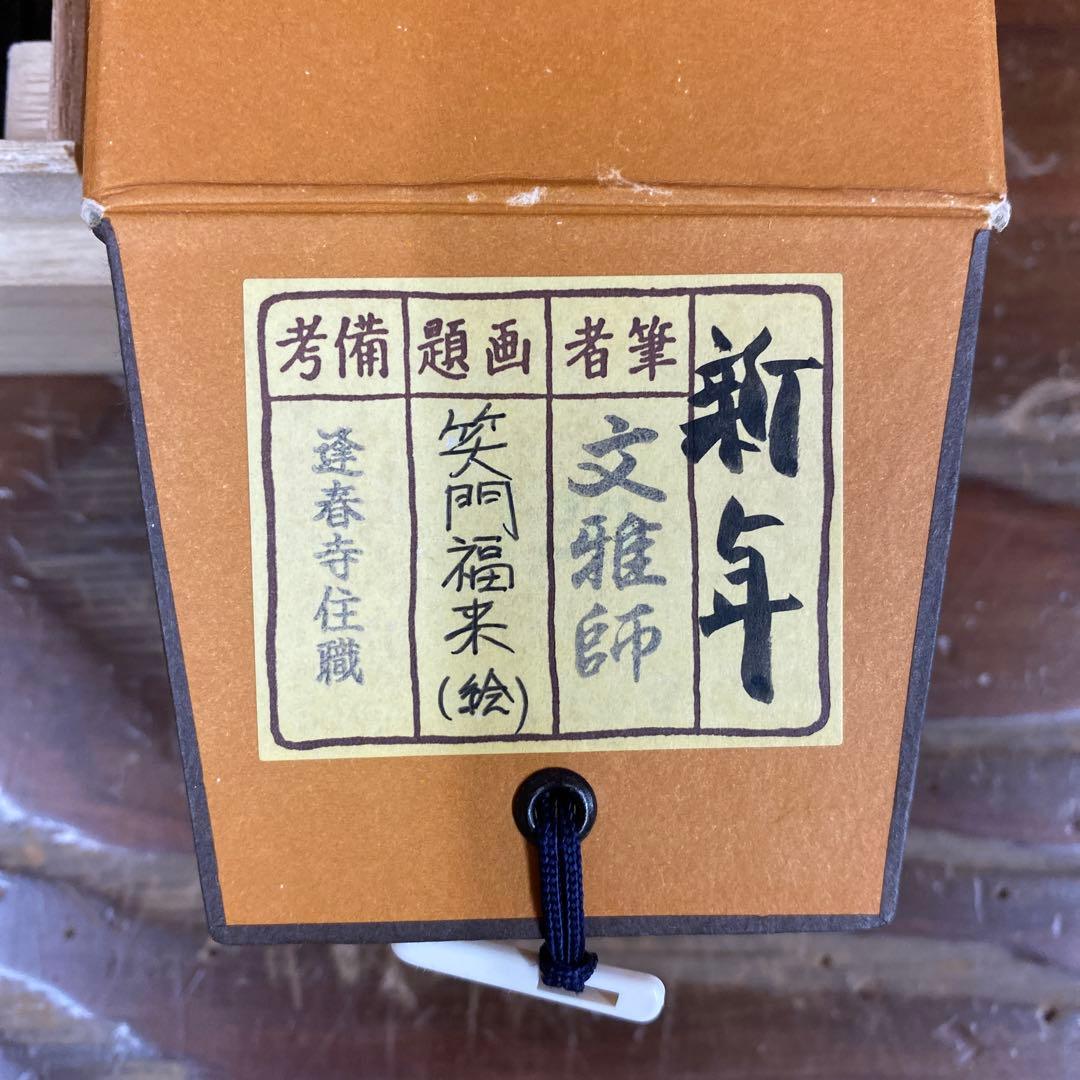 新年
筆者
文雅師
画題
笑門福来
(絵)
備考
逢春寺住職